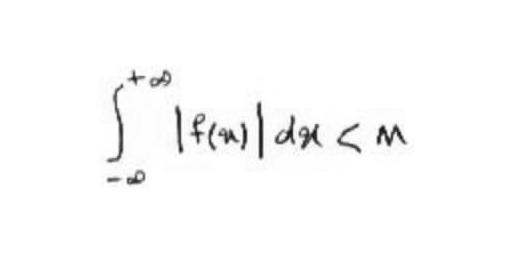 ∫_{-∞}^{+∞} |f(x)| dx < M